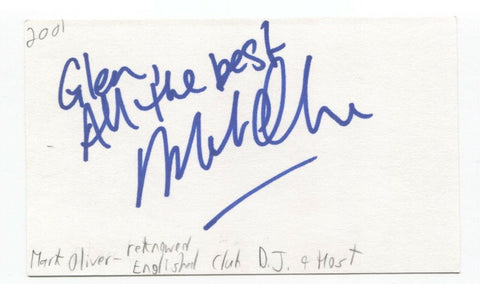 2001
Glen,
All the best
Mark Oliver
Mark Oliver - reknowed
English Club D.J. & Host